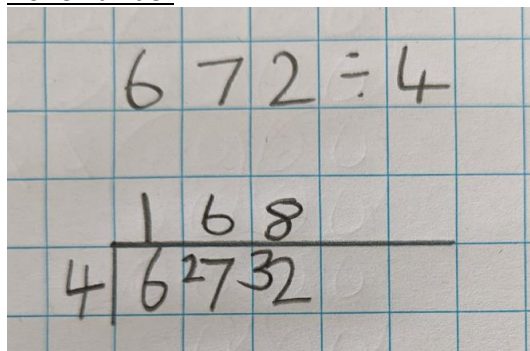 672÷4
168
4 6²7³2